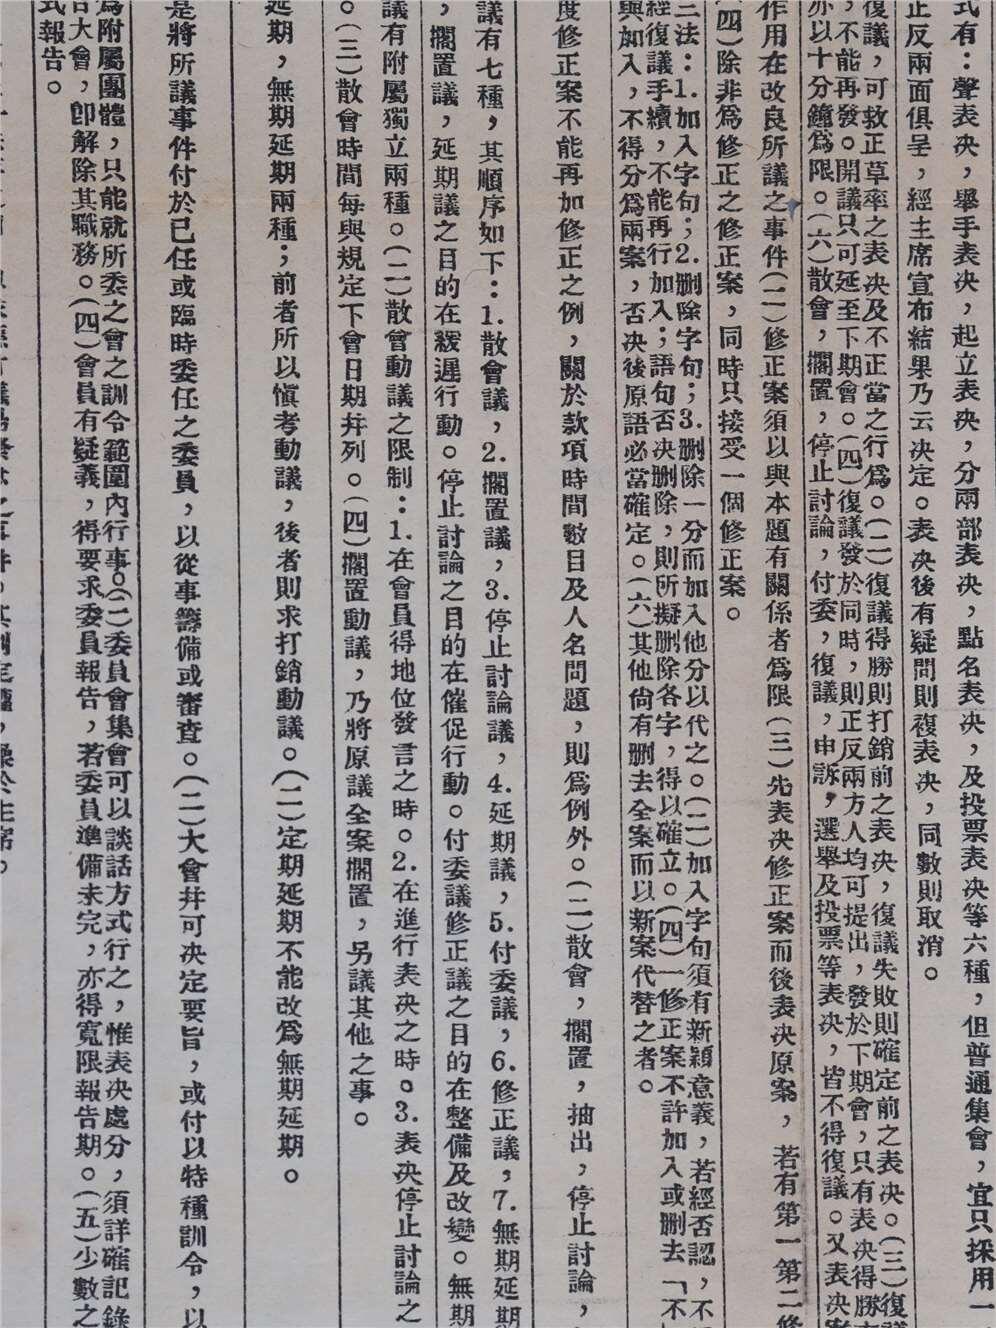 式有：聲表决，舉手表决，起立表决，分兩部表决，點名表决，及投票表决等六種，但普通集會，宜只採用一
正反兩面俱呈，經主席宣布結果乃云决定。表决後有疑問則複表决，同數則取消。
復議，可救正草率之表决及不正當之行爲。(二)復議得勝則打銷前之表决，復議失敗則確定前之表决。(三)復議
，不能再發。開議只可延至下期會。(四)復議發於同時，則正反兩方人均可提出，發於下期會，只有表决得勝方
亦以十分鐘爲限。(六)散會，擱置，停止討論，付委，復議，申訴，選舉及投票等表决，皆不得復議。又表决案
作用在改良所議之事件(二)修正案須以與本題有關係者爲限(三)先表决修正案而後表决原案，若有第一第二修
(四)除非爲修正之修正案，同時只接受一個修正案。
三法：1.加入字句；2.删除字句；3.删除一分而加入他分以代之。(二)加入字句須有新穎意義，若經否認，不
經復議手續，不能再行加入；語句否决删除，則所擬删除各字，得以確立。(四)一修正案不許加入或删去「不
與加入，不得分爲兩案，否决後原語必當確定。(六)其他尙有删去全案而以新案代替之者。
度修正案不能再加修正之例，關於款項時間數目及人名問題，則爲例外。(二)散會，擱置，抽出，停止討論，
議有七種，其順序如下：1.散會議，2.擱置議，3.停止討論議，4.延期議，5.付委議，6.修正議，7.無期延期
，擱置議，延期議之目的在緩遲行動。停止討論之目的在催促行動。付委議修正議之目的在整備及改變。無期
議有附屬獨立兩種。(二)散會動議之限制：1.在會員得地位發言之時。2.在進行表决之時。3.表决停止討論之
。(三)散會時間每與規定下會日期幷列。(四)擱置動議，乃將原議全案擱置，另議其他之事。
延期，無期延期兩種；前者所以愼考動議，後者則求打銷動議。(二)定期延期不能改爲無期延期。
是將所議事件付於已任或臨時委任之委員，以從事籌備或審查。(二)大會幷可决定要旨，或付以特種訓令，以
爲附屬團體，只能就所委之會之訓令範圍內行事。(二)委員會集會可以談話方式行之，惟表决處分，須詳確記錄
告大會，卽解除其職務。(四)會員有疑義，得要求委員報告，若委員準備未完，亦得寬限報告期。(五)少數之
式報告。